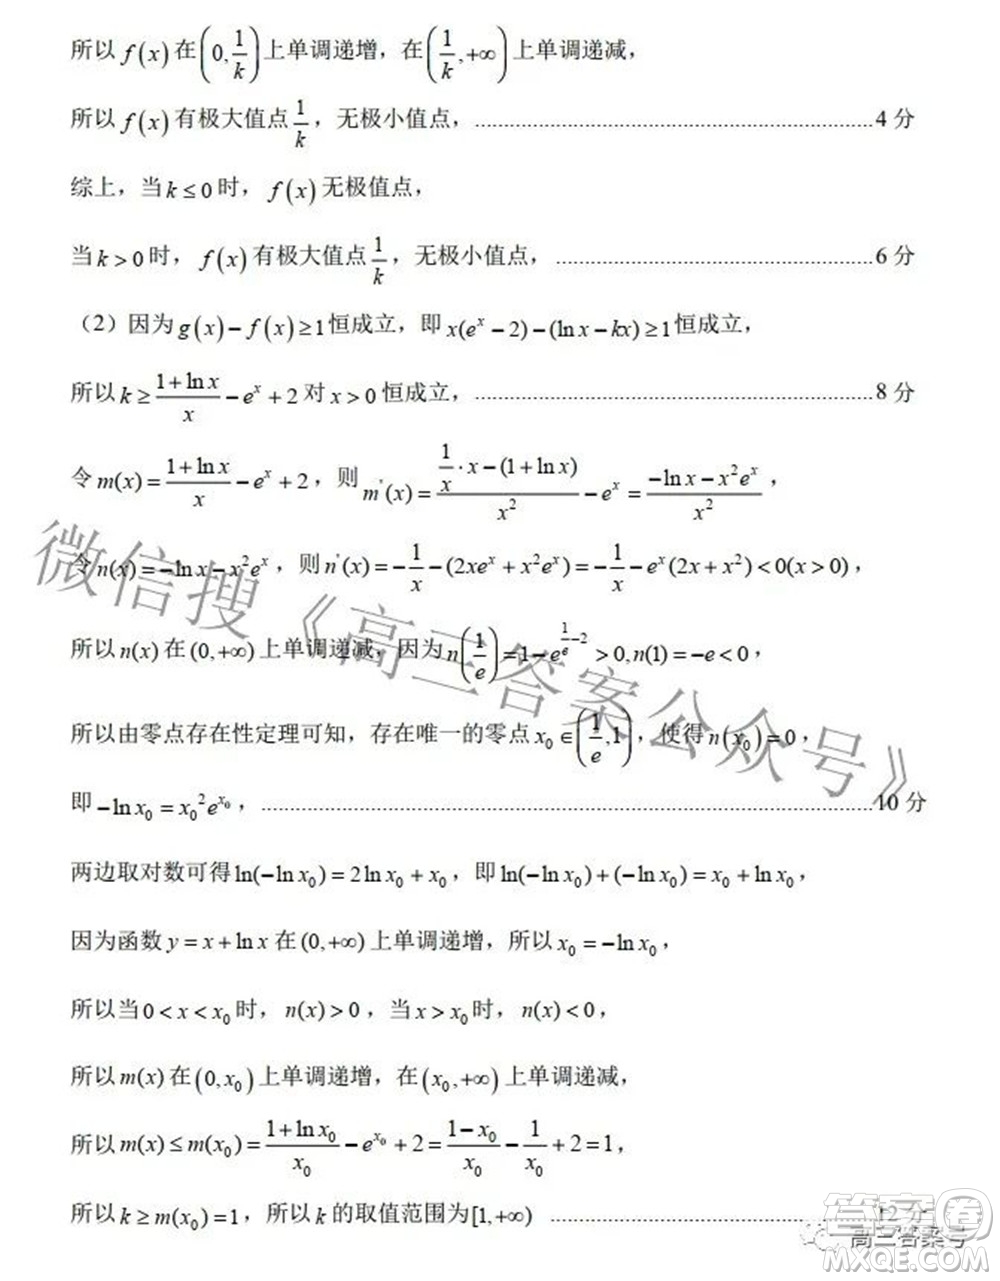 所以 f(x) 在 (0, 1/k) 上单调递增，在 (1/k, +∞) 上单调递减，
所以 f(x) 有极大值点 1/k，无极小值点，……4 分
综上，当 k ≤ 0 时， f(x) 无极值点，
当 k > 0 时， f(x) 有极大值点 1/k，无极小值点，……6 分
（2）因为 g(x) − f(x) ≥ 1 恒成立，即 x(e^x − 2) − (ln x − kx) ≥ 1 恒成立，
所以 k ≥ (1+ln x)/x − e^x + 2 对 x > 0 恒成立，……8 分
令 m(x) = (1+ln x)/x − e^x + 2，则 m'(x) = (1/x · x − (1+ln x))/x² − e^x = (−ln x − x²e^x)/x²，
令 n(x) = −ln x − x²e^x，则 n'(x) = −1/x − (2xe^x + x²e^x) = −1/x − e^x(2x + x²) < 0(x > 0)，
所以 n(x) 在 (0, +∞) 上单调递减，因为 n(1/e) = 1 − e^(1/e − 2) > 0, n(1) = −e < 0，
所以由零点存在性定理可知，存在唯一的零点 x₀ ∈ (1/e, 1)，使得 n(x₀) = 0，
即 −ln x₀ = x₀²e^(x₀)，……10 分
两边取对数可得 ln(−ln x₀) = 2ln x₀ + x₀，即 ln(−ln x₀) + (−ln x₀) = x₀ + ln x₀，
因为函数 y = x + ln x 在 (0, +∞) 上单调递增，所以 x₀ = −ln x₀，
所以当 0 < x < x₀ 时， n(x) > 0，当 x > x₀ 时， n(x) < 0，
所以 m(x) 在 (0, x₀) 上单调递增，在 (x₀, +∞) 上单调递减，
所以 m(x) ≤ m(x₀) = (1+ln x₀)/x₀ − e^(x₀) + 2 = (1−x₀)/x₀ − 1/x₀ + 2 = 1，
所以 k ≥ m(x₀) = 1，所以 k 的取值范围为 [1, +∞) ……12 分
微信搜《高三答案公众号》
答案圈
高三答案号
MXQE.COM